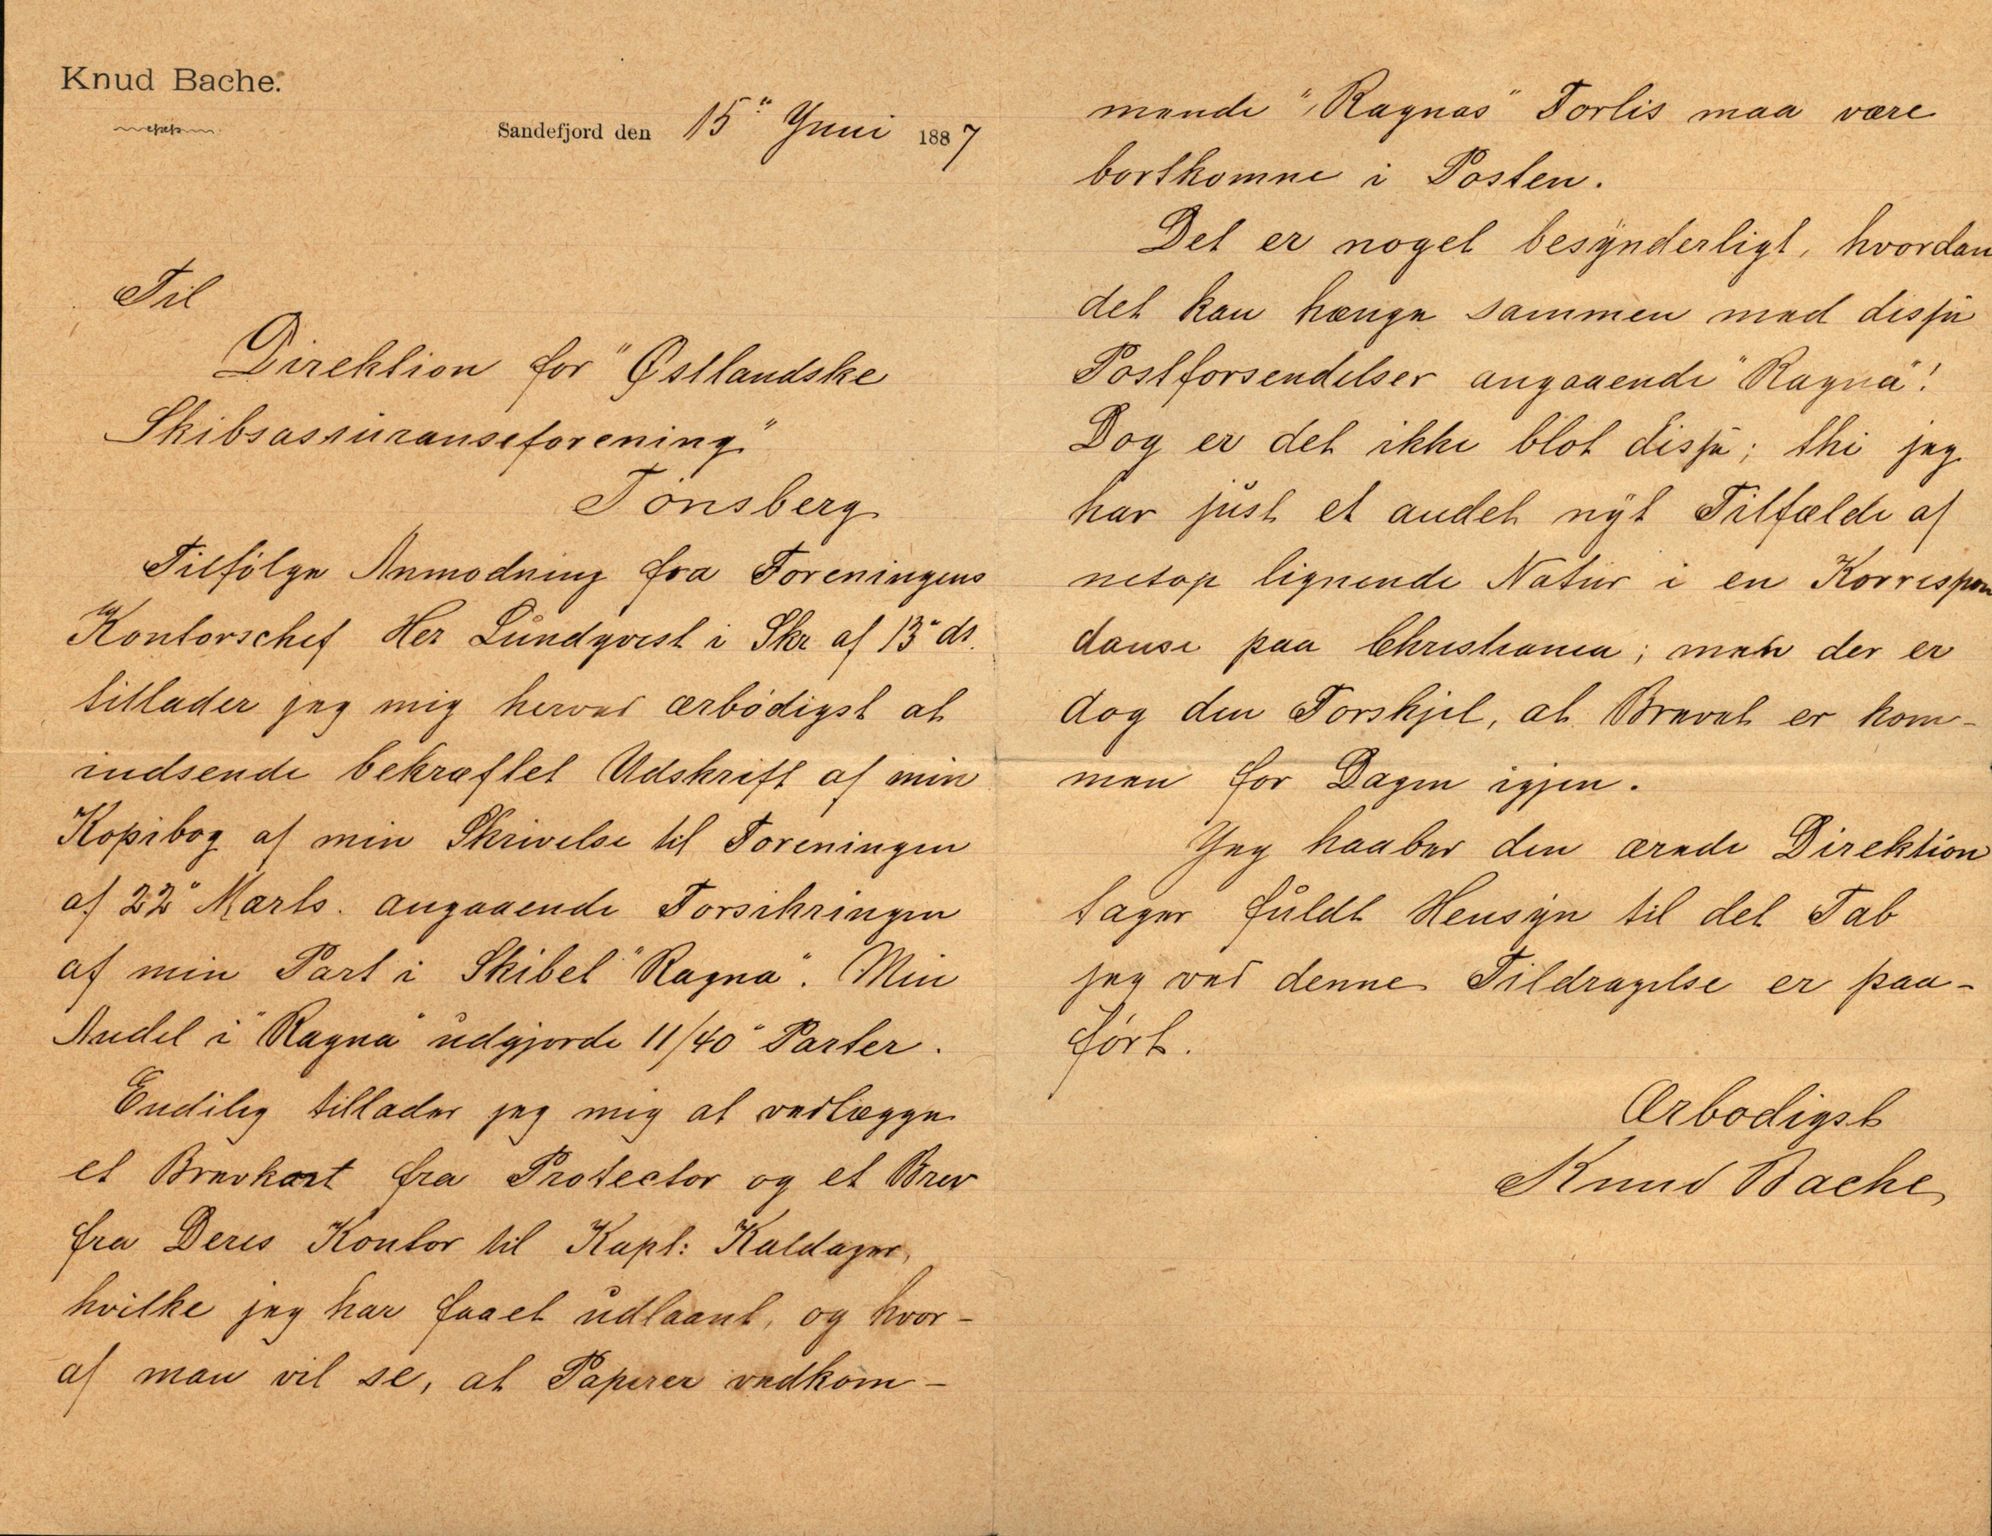 Knud Bache.
Sandefjord den 15" Juni 1887
Til
Direktion for "Østlandske
Skibsassuranseforening"
Tønsberg
Tilfølge Anmodning fra Foreningens
Kontorschef Her Lundqvist i Skr af 13" ds.
tillader jeg mig herved ærbødigst at
indsende bekræftet Udskrift af min
Kopibog af min Skrivelse til Foreningen
af 22" Marts. angaaende Forsikringen
af min Part i Skibet "Ragna". Min
Andel i "Ragna" udgjorde 11/40" Parter.
Endilig tillader jeg mig at vedlægge
et Brevkort fra Protector og et Brev
fra Deres Kontor til Kapt: Kaldager,
hvilke jeg har faaet udlaant, og hvor-
af man vil se, at Papirer vedkom-
mende "Ragnas" Forlis maa være
bortkomne i Posten.
Det er noget besynderligt, hvordan
det kan hænge sammen med disse
Postforsendelser angaaende "Ragna"!
Dog er det ikke blot disse; thi jeg
har just et andet nyt Tilfælde af
netop lignende Natur i en Korrespon
danse paa Christiania; men der er
dog den Forskjel, at Brevet er kom-
men for Dagen igjen.
Jeg haaber den ærede Direktion
tager fuldt Hensyn til det Tab
jeg ved denne Tildragelse er paa-
ført.
Ærbodigst
Knud Bache